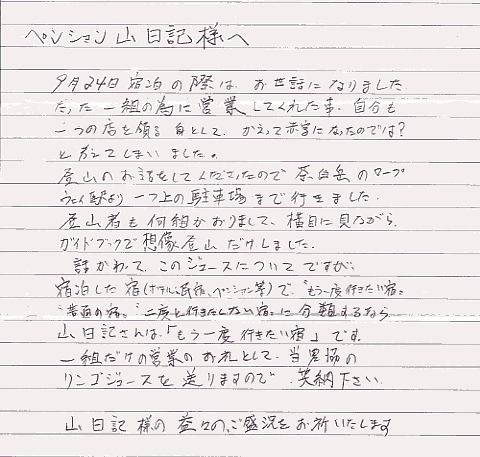 ペンション山日記様へ
9月24日宿泊の際は、お世話になりました
たった一組の為に営業してくれた事、自分も
一つの店を預る身として、かえって赤字になったのでは?
と考えてしまいました。
登山のお話をしてくださったので茶臼岳のロープ
ウェイ駅より一つ上の駐車場まで行きました。
登山者も何組かおりまして、横目に見ながら、
ガイドブックで想像登山だけしました。
話かわって、このジュースについてですが、
宿泊した宿(ホテル、民宿、ペンション等)で、"もう一度行きたい宿"
"普通の宿" "二度と行きたくない宿"に分類するなら
山日記さんは、「もう一度行きたい宿」です。
一組だけの営業のお礼として、当農協の
リンゴジュースを送りますので、笑納下さい。
山日記様の益々のご盛況をお祈いたします